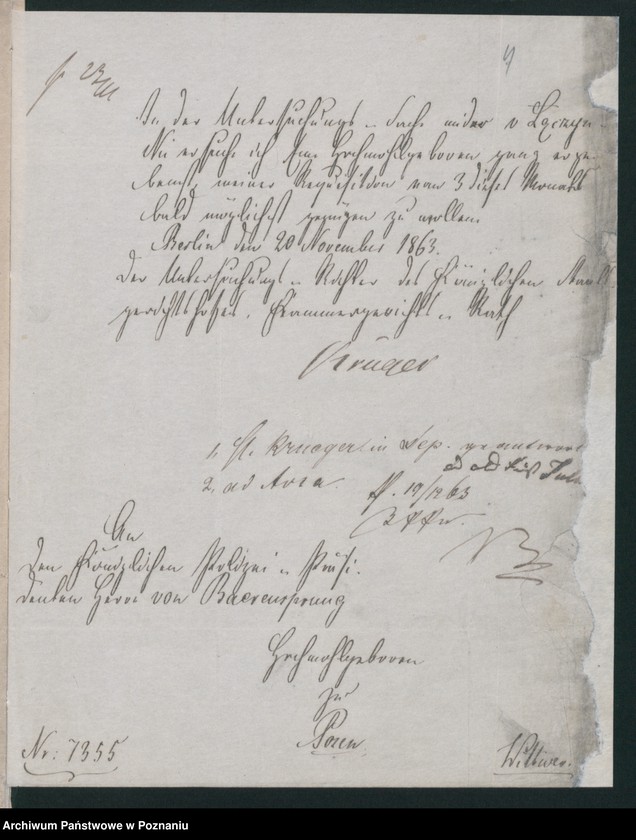 In der Untersuchungs-Sache wider v Łączyn-
ersuche ich Euer Hochwohlgeboren ganz erge-
benst, meiner Requisition vom 3 dieses Monats
bald möglichst genügen zu wollen.
Berlin den 20 November 1863.
Der Untersuchungs-Richter des Königlichen Staats-
gerichtshofes, Kammergerichts-Rath
Krüger
1, H. Krueger in
2, ad Acta.
19/12 63
An
den Königlichen Polizei-Präsi-
denten Herrn von Baerensprung
Hochwohlgeboren
zu
Posen.
Nr: 7355
Archiwum Państwowe w Poznaniu